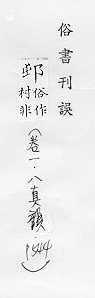 俗書刊誤
邨俗作
村非
(卷一.八真韻.944)